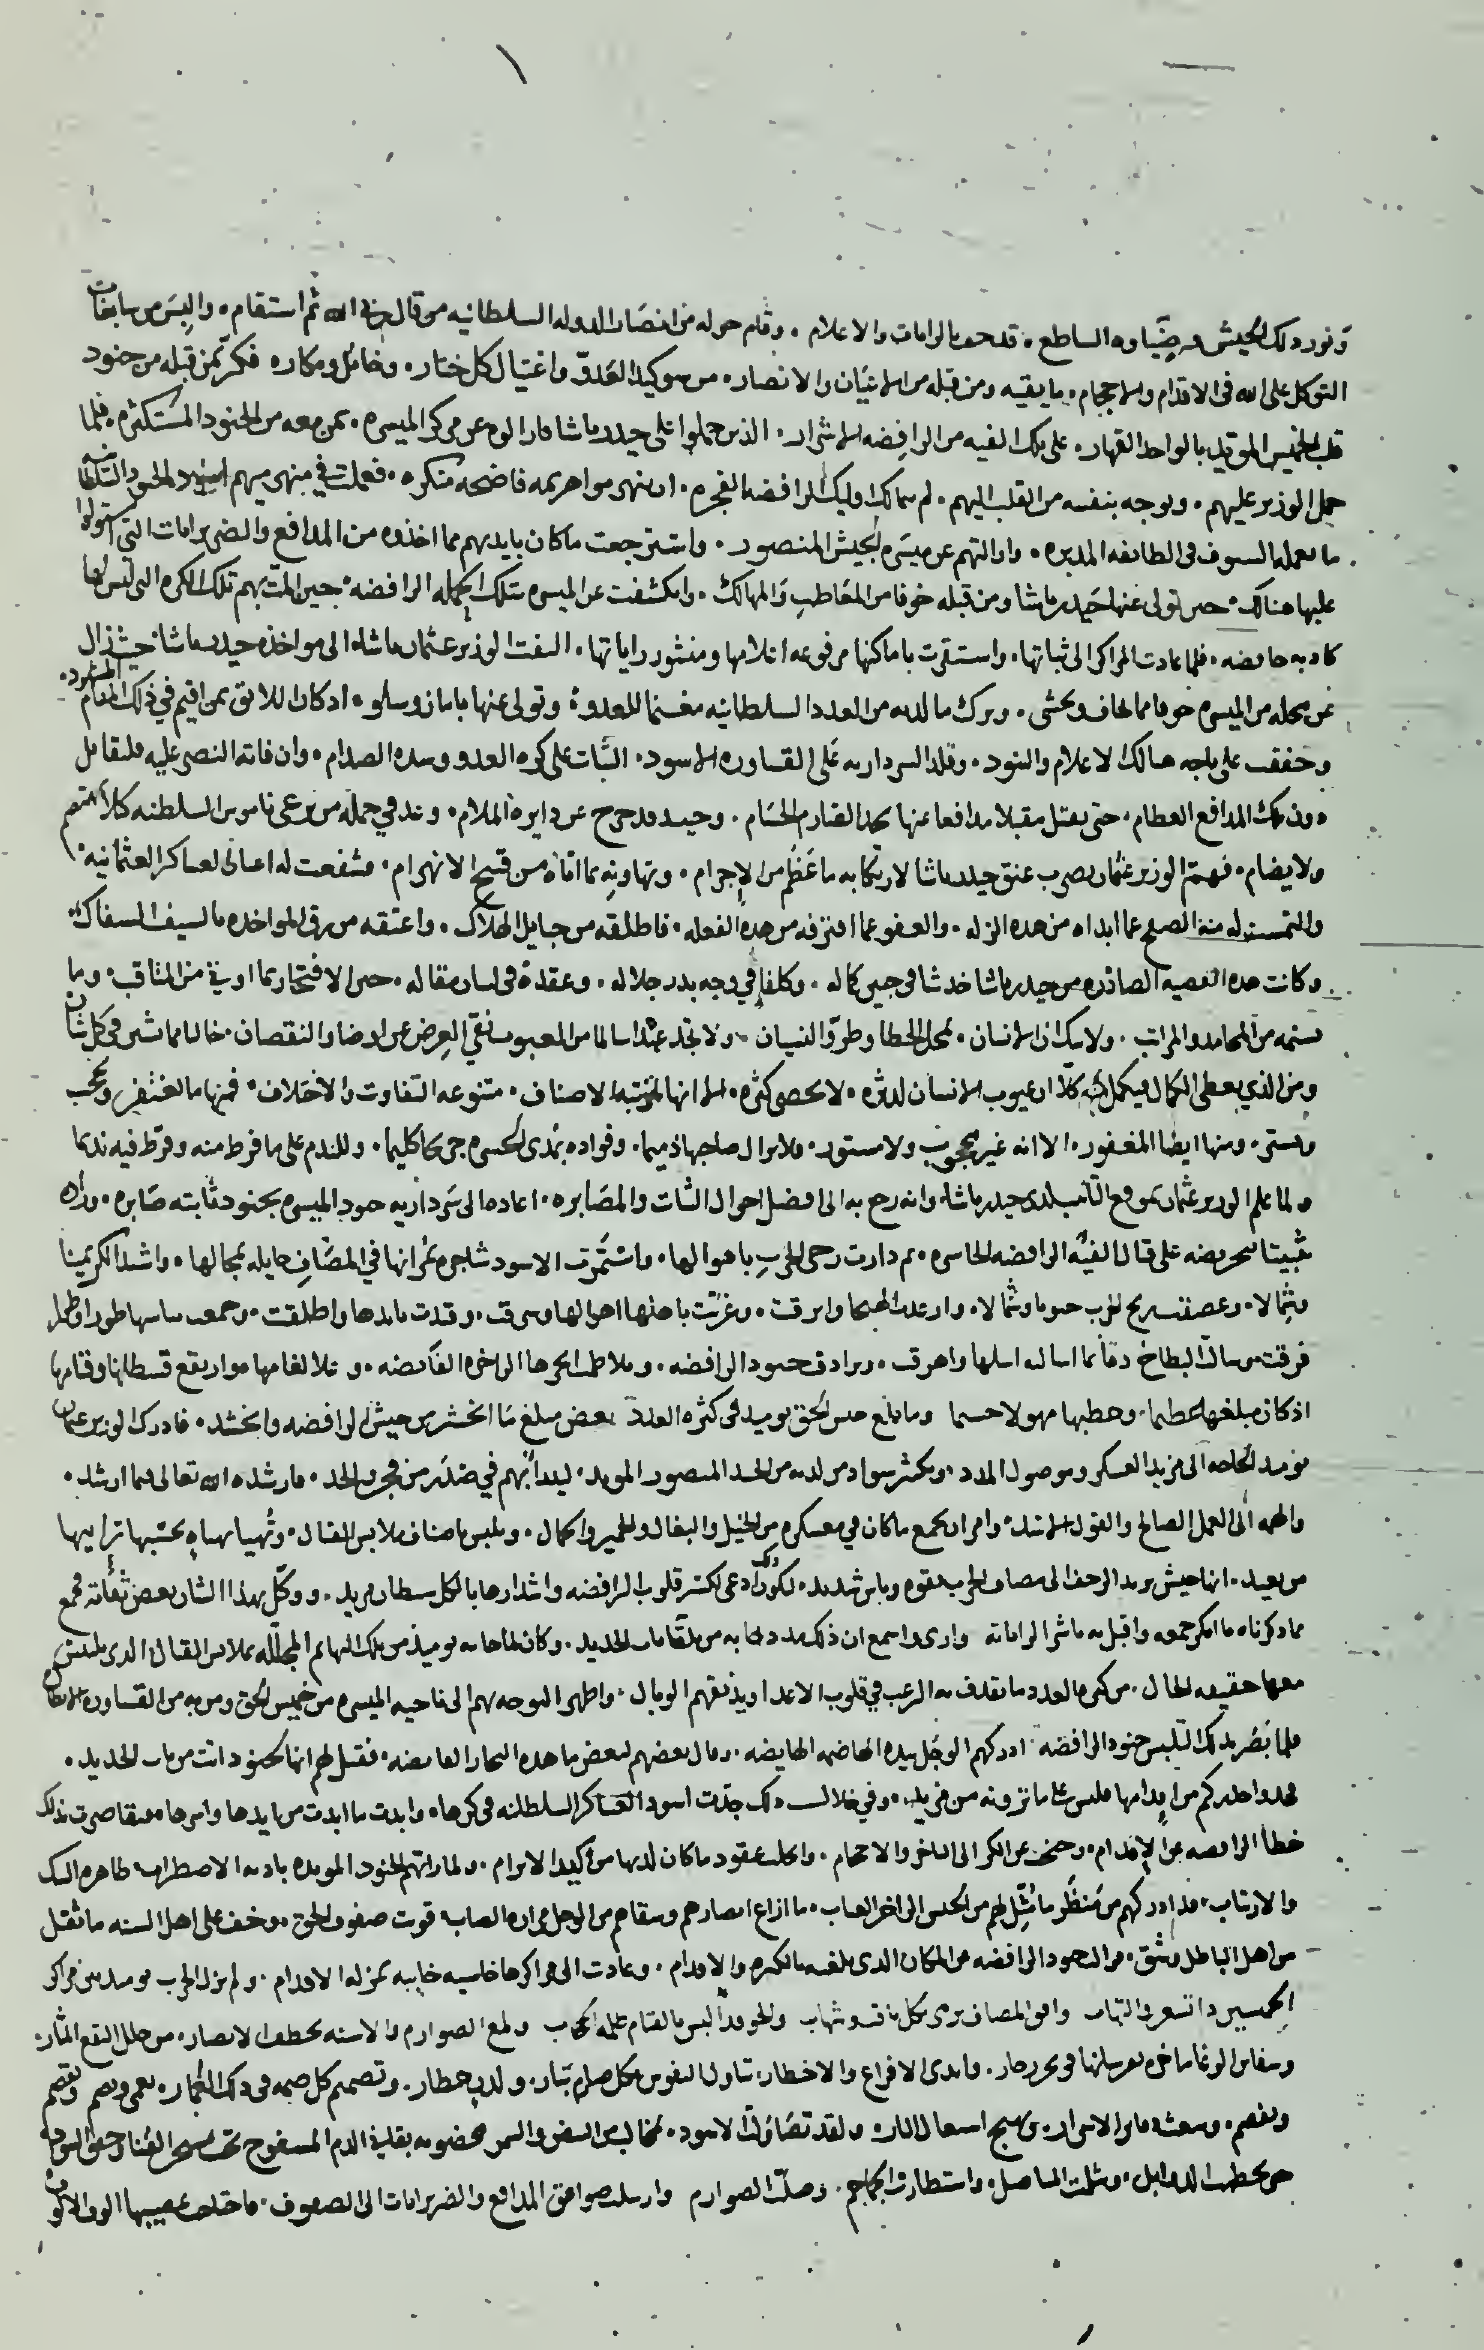 ونور ذلك الجيش وضياوه الساطع، قد حف بالرايات والاعلام، وقام حوله من انصار الدوله السلطانيه من قال ربي الله ثم استقام، والبس من سابغات
التوكل على الله في الاقدام والاحجام، ما يقيه ومن قبله من الاعيان والانصار، من سو كيد العدو واغتيال كل ختار، وخاتل ومكار، فكر بمن قبله من جنود
قلب الخميس المويد بالواحد القهار، على تلك الفيه من الرافضه الاشرار، الذين حملوا على حيدر باشا فازالوه عن مركز الميسره، بمن معه من الجنود المستكثره، فلما
حمل الوزير عليهم، وتوجه بنفسه من القلب اليهم، لم يتمالك اوليك الرافضه الفجره، ان انهزموا هزيمه فاضحه منكره، فعملت في منهزميهم اسود الحق السلطانيه
ما تعمله السيوف في الطائفه المدبره، وازالتهم عن ميسرة الجيش المنصور، واسترجعت ما كان بايديهم مما اخذوه من المدافع والضربزانات التي استولوا
عليها هنالك، حين تولى عنها حيدر باشا ومن قبله خوفا من المعاطب والمهالك، وانكشفت عن الميسره تلك الجمله الرافضه، حين المت بهم تلك الكره التي ليس لها
كاذبه خافضه، فلما عادت المراكز الى ثباتها، واستقرت باماكنها مرفوعه اعلامها ومنشور راياتها، التفت الوزير عثمان باشا، الى مواخذه حيدر باشا، حيث زال
عن محله من الميسره خوفا مما يخاف ويخشى، وترك ما لديه من العدد السلطانيه مغنما للعدو، وتولى عنها بامان وسلو، اذ كان اللائق بمن اقيم في ذلك المقام المشهود،
وخفقت على راسه هنالك الاعلام والبنود، وقلد السرداريه على القساوره الاسود، الثبات على كره العدو وشده الصدام، وان فاته النصر عليه فليقاتل
دون تلك المدافع العظام، حتى يقتل مقبلا مدافعا عنها بحد الصارم الحسام، وحينيذ قد خرج عن دايرة الملام، وعد في جملة من يرعى ناموس السلطنه كلا يهتضم
ولا يضام، فهم الوزير عثمان بضرب عنق حيدر باشا لارتكابه ما عظم من الاجرام، وتهاونه بما اتاه من قبيح الانهزام، فشفعت له اعيان العساكر العثمانيه،
والتمست له منه الصفح عما ابداه من هذه الزله، والعفو عما اقترفه من هذه الفعله، فاطلقه من حبايل الهلاك، واعتقه من رق المواخذه بالسيف السفاك،
وكانت هذه القضيه الصادره من حيدر باشا خدشا في جبين كماله، وكلفا في وجه بدر جلاله، وعقدة في لسان مقاله، حين الافتخار بما اوتي من المناقب، وما
تسنمه من المحامد والمراتب، ولا شك ان الانسان، محل الخطا وطرو النسيان، ولا تجد عبدا سالما من العيوب نقي العرض عن الوضا والنقصان، خاليا مما شين في كل شان
ومن الذي يعطى الكمال فيكمل كلا ان عيوب الانسان لديثره، لا تحصى كثره، الا انها الاصناف، متنوعه التفاوت والاختلاف، فمنها ما يغتفر، ويحجب
ويستر، ومنها ايضا المغفور، الا انه غير محجوب ولا مستور، ولا يزال صاحبها ذميما، وفواده بمدى الحسره جريحا كليما، وللندم على ما فرط منه وفرط فيه نديما
ولما علم الوزير عثمان بموقع التانيب لدى حيدر باشا، وانه رجع به الى افضل احوال الثبات والمصابره، اعاده الى سرداريه جنود الميسره بجنود ثابته صابره، وزاده
تثبيتا بتحريضه على قتال الفيه الرافضه الخاسره، ثم دارت رحى الحرب باهوالها، واستمرت الاسود شاجرة مرانها في المصاف جايله بمجالها، واشتد الكر يمينا
وشمالا، وعصفت ريح الحرب جنوبا وشمالا، وارعدت الهيجا وابرقت، وغربت باهلها اهوالها وشرقت، وقذت بايدها واطلقت، وجمعت بباسها طورا وطورا
فرقت، من سالت البطاح دما بما اساله اسلها واهرقت، وترادفت جنود الرافضه، وتلاطمت ابحرها الزاخرة الفايضه، وعلا لغامها هوا ريقع قسطانها وقتامها
اذ كان مبلغها عظيما، وخطبها مهولا جسيما وما بلغ جيش الحق يوميذ في كثرة العدد بعض مبلغ ما انحشر من جيش الرافضه واحتشد، فادرك الوزير عثمان
يوميذ الحاجه الى مزيد العسكر ووصول المدد، ويكثر سواد من لديه من الجند المنصور المويد، ليدرا بهم في ضد من فجر والحد، فارشده الله تعالى فيما ارشد،
والهمه الى العمل الصالح والقول الاسد، وامر ان يجمع ما كان في معسكره من الخيل والبغال والحمير والجمال، وتلبس باصناف ملابس القتال، وتهيا بهيئاة يحسبها ترايها
من بعيد، انها جيش يريد الزحف الى مصاف الحرب بقوه وباس شديد، ليكون ذلك ادعى لكسر قلوب الرافضه واشد ارهابا لكل شيطان مريد، ووكل بهذا الشان بعض ثقاته فجمع
مما ذكرناه ما امكن جمعه واقبل به ناشرا لراياته وارى واسمع ان ذلك مدد جا به من تلقا باب الحديد، وكان لما جا به يوميذ من تلك البهايم المجلله بملابس القتال، الذي تلتبس
معها حقيقه الحال، من كثره العدد ما يقذف به الرعب في قلوب الاعدا ويذيقهم الوبال، واظهر التوجه بهم الى ناحيه الميسره من خميس الحق ومن به من القساوره الابطال
فلما بصر بذلك التلبيس جنود الرافضه، ادركهم الوجل بيده الهاضمه الهايضه، وقال بعضهم لبعض ما هذه البحار الفايضه، فقيل لهم انها لجنود اتت من باب الحديد،
فخذوا حذركم من اقدامها فليس على ما ترونه من مزيد، وفي خلال ذلك جدت اسود العساكر السلطانيه في كرها، وابدت ما ابدت من ايدها واسرها، فتقاصرت بذلك
خطا الرافضه عن الاقدام، وجنحت عن الكر الى التاخر والاحجام، وانحلت عقود ما كان لديها من اكيد الابرام، ولما راتهم الجنود المويده باديه الاضطراب، ظاهره الشك
والارتياب، قد ادركهم من منظر ما مثل لهم من الجيش الى اخر العباب، ما ازاغ ابصارهم وسقاهم من الوجل مراره الصاب، قويت صفوف الحق، وخف على اهل السنه ما ثقل
من اهل الباطل وشق، فزالت جنود الرافضه عن المكان الذي بلغته بالكره والاقدام، وعادت الى مراكزها خاسيه خايبه بمزلة الاقدام، ولم يزل الحرب يوميذ بين مراكز
الخميسين ذا تسعر والتهاب وافق المصاف يرمى بكل ثاقب وشهاب والجو قد البس بالقتام جلباب ولمع الصوارم والاسنه يخطف الابصار، من خلال النقع المثار،
وسفاين الوغا ماخره بفرسانها في بحر زخار، وايدى الاقراع والاخطار، تناول النفوس بكل صارم بتار، ولدن خطار، وتصمم كل صمه في ذلك الغمار، يعمي ويصم ويقصم
ويفصم، ولقد تصاولت الاسود، بمخالب من البيض والسمر مخضوبه بقاني الدم المسفوح
حتى تحطمت الذوابل، وثلمت المناصل، واستطارت الجماجم، وصلت الصوارم وارسلت صواعق المدافع والضربزانات الى الصفوف، فاختلت بمصيبها الوف الالوف